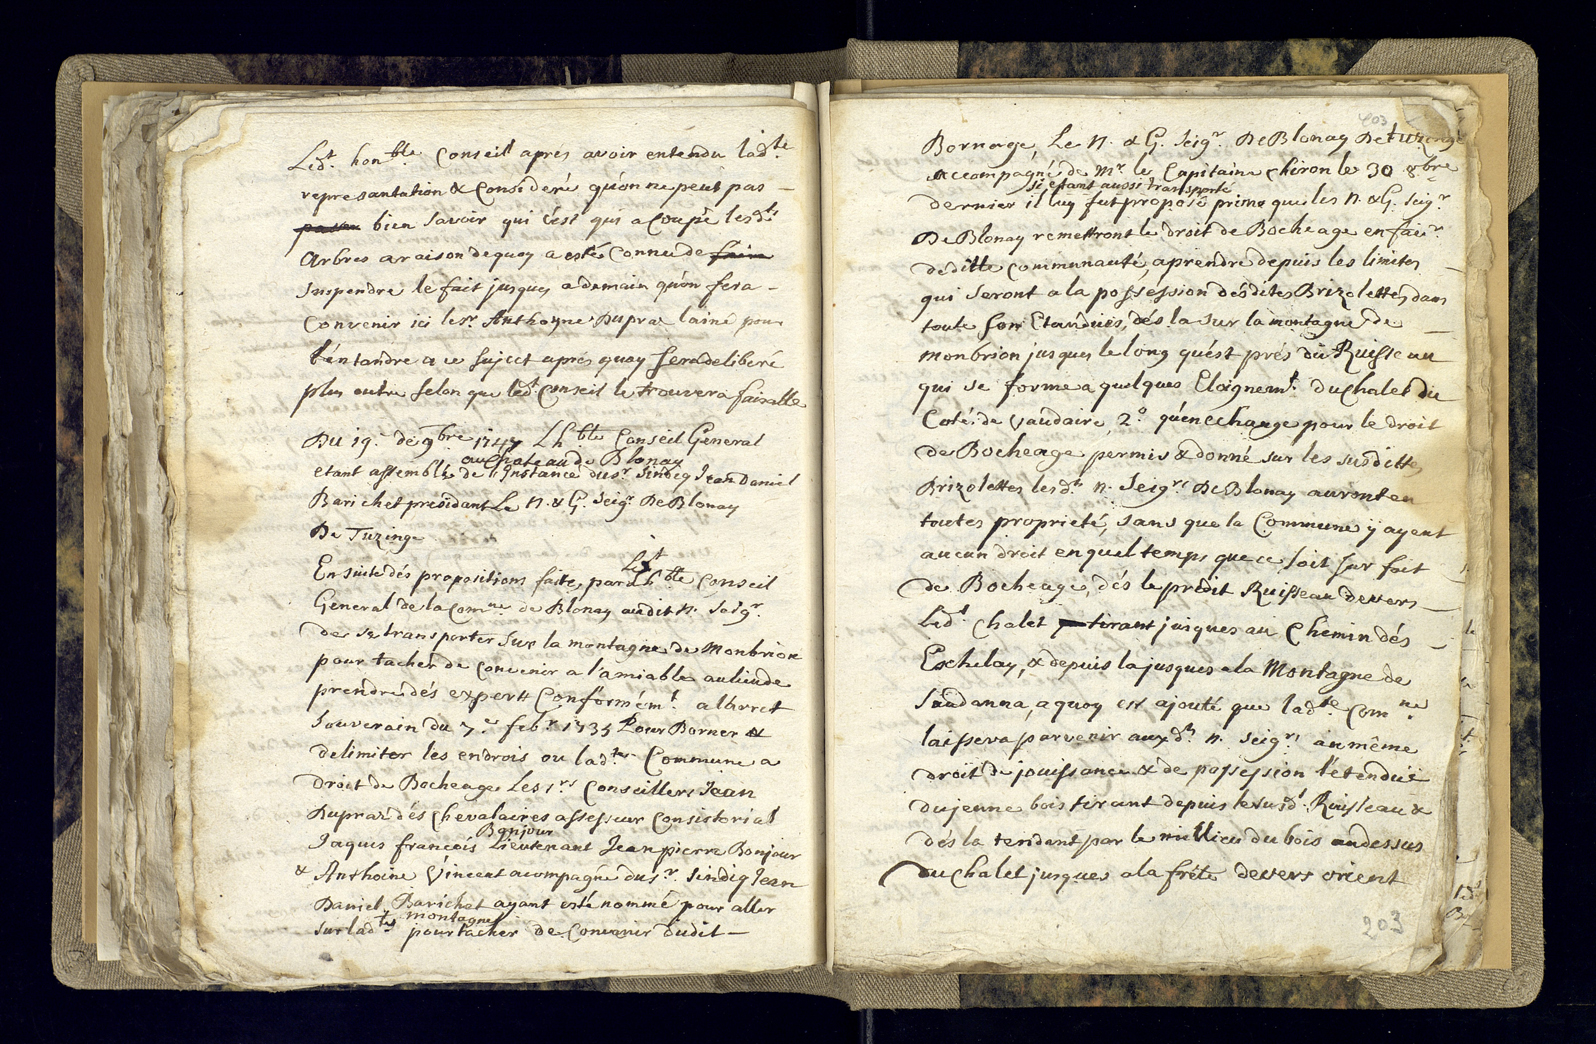 Ledt. honble Conseil aprés avoir entendu ladte.
represantation & Consideré qu'on ne peut pas –
passer bien Savoir qui c'est qui a Coupé lesdts
Arbres a raison de quoy a esté Connu de faire
Suspendre le fait jusques a demain qu'on fera –
Convenir ici lesr. Anthoyne Dupraz lainé pour
l'entandre a ce Sujet aprés quoy sera deliberé
plus outre selon que ledt. Conseil le trouvera faisable
Du 19. de 9bre 1747 Lhble Conseil General
au Chateau de Blonay
etant assemblé de l'instance dusr. Sindiq Jean Daniel
Barichet presidant Le N. & G. Seigr. De Blonay
De Tuzinge
Ensuite dés propositions faite, par Ledt hble Conseil
General de la Comne de Blonay audit N. Seigr.
de se transporter Sur la montagne de Monbrion
pour tacher de Convenir a l'amiable au lieu de
prendre dés experts Conformémt. a l'Arret
Souverain du 7e. febr. 1735 Pour Borner &
delimiter les endrois ou ladte Commune a
droit de Bocheage Les srs Conseillers Jean
Dupraz dés Chevalaires assesseur Consistorial
Bonjour
Jaques françois Lieutenant Jean pierre Bonjour
& Anthoine Vincent acompagné dusr. Sindiq Jean
Daniel Barichet ayant esté nommé pour aller
montagnes
sur ladtes pour tacher de Convenir dudit –
203
Bornage, Le N. & G. Seigr. De Blonay De Tuzinge
accompagné de Mr. le Capitaine Chiron le 30 8bre
si estant aussi transporté
dernier il luy fut proposé primo que les N. & G. Seigr.
De Blonay remettront le droit de Bocheage en faір.
de ditte Communauté, aprendre depuis les limites –
qui Seront a la possession désdites Brizolettes, dans
toute son Etanduës, dés la sur la montagne de –
monbrion jusques le long qu'est prés du Ruisseau
qui se forme a quelques Eloignemt. du Chalet du
Coté de Vaudaire, 2o. qu'en echange pour le droit
de Bocheage permis & donné sur les susdittes
Brizolettes lesdts N. Seigrs De Blonay auront en
toutes proprieté, sans que la Commune y ayent
aucun droit en quel temps que ce soit sur fait
de Bocheage, dés le predit Ruisseau devers –
Ledt Chalet tirant jusques au Chemin dés –
Eschelay, & depuis la jusques a la Montagne de
Saudanna, a quoy est ajouté que ladte Comne.
laissera parvenir auxdts N. Seigrs au même
droit de jouissance & de possession l'étenduë
du jeune bois tirant depuis lesusdt. Ruisseau &
dés la tendant par le millieu du bois au dessus
du Chalet jusques a la frête devers orient
203